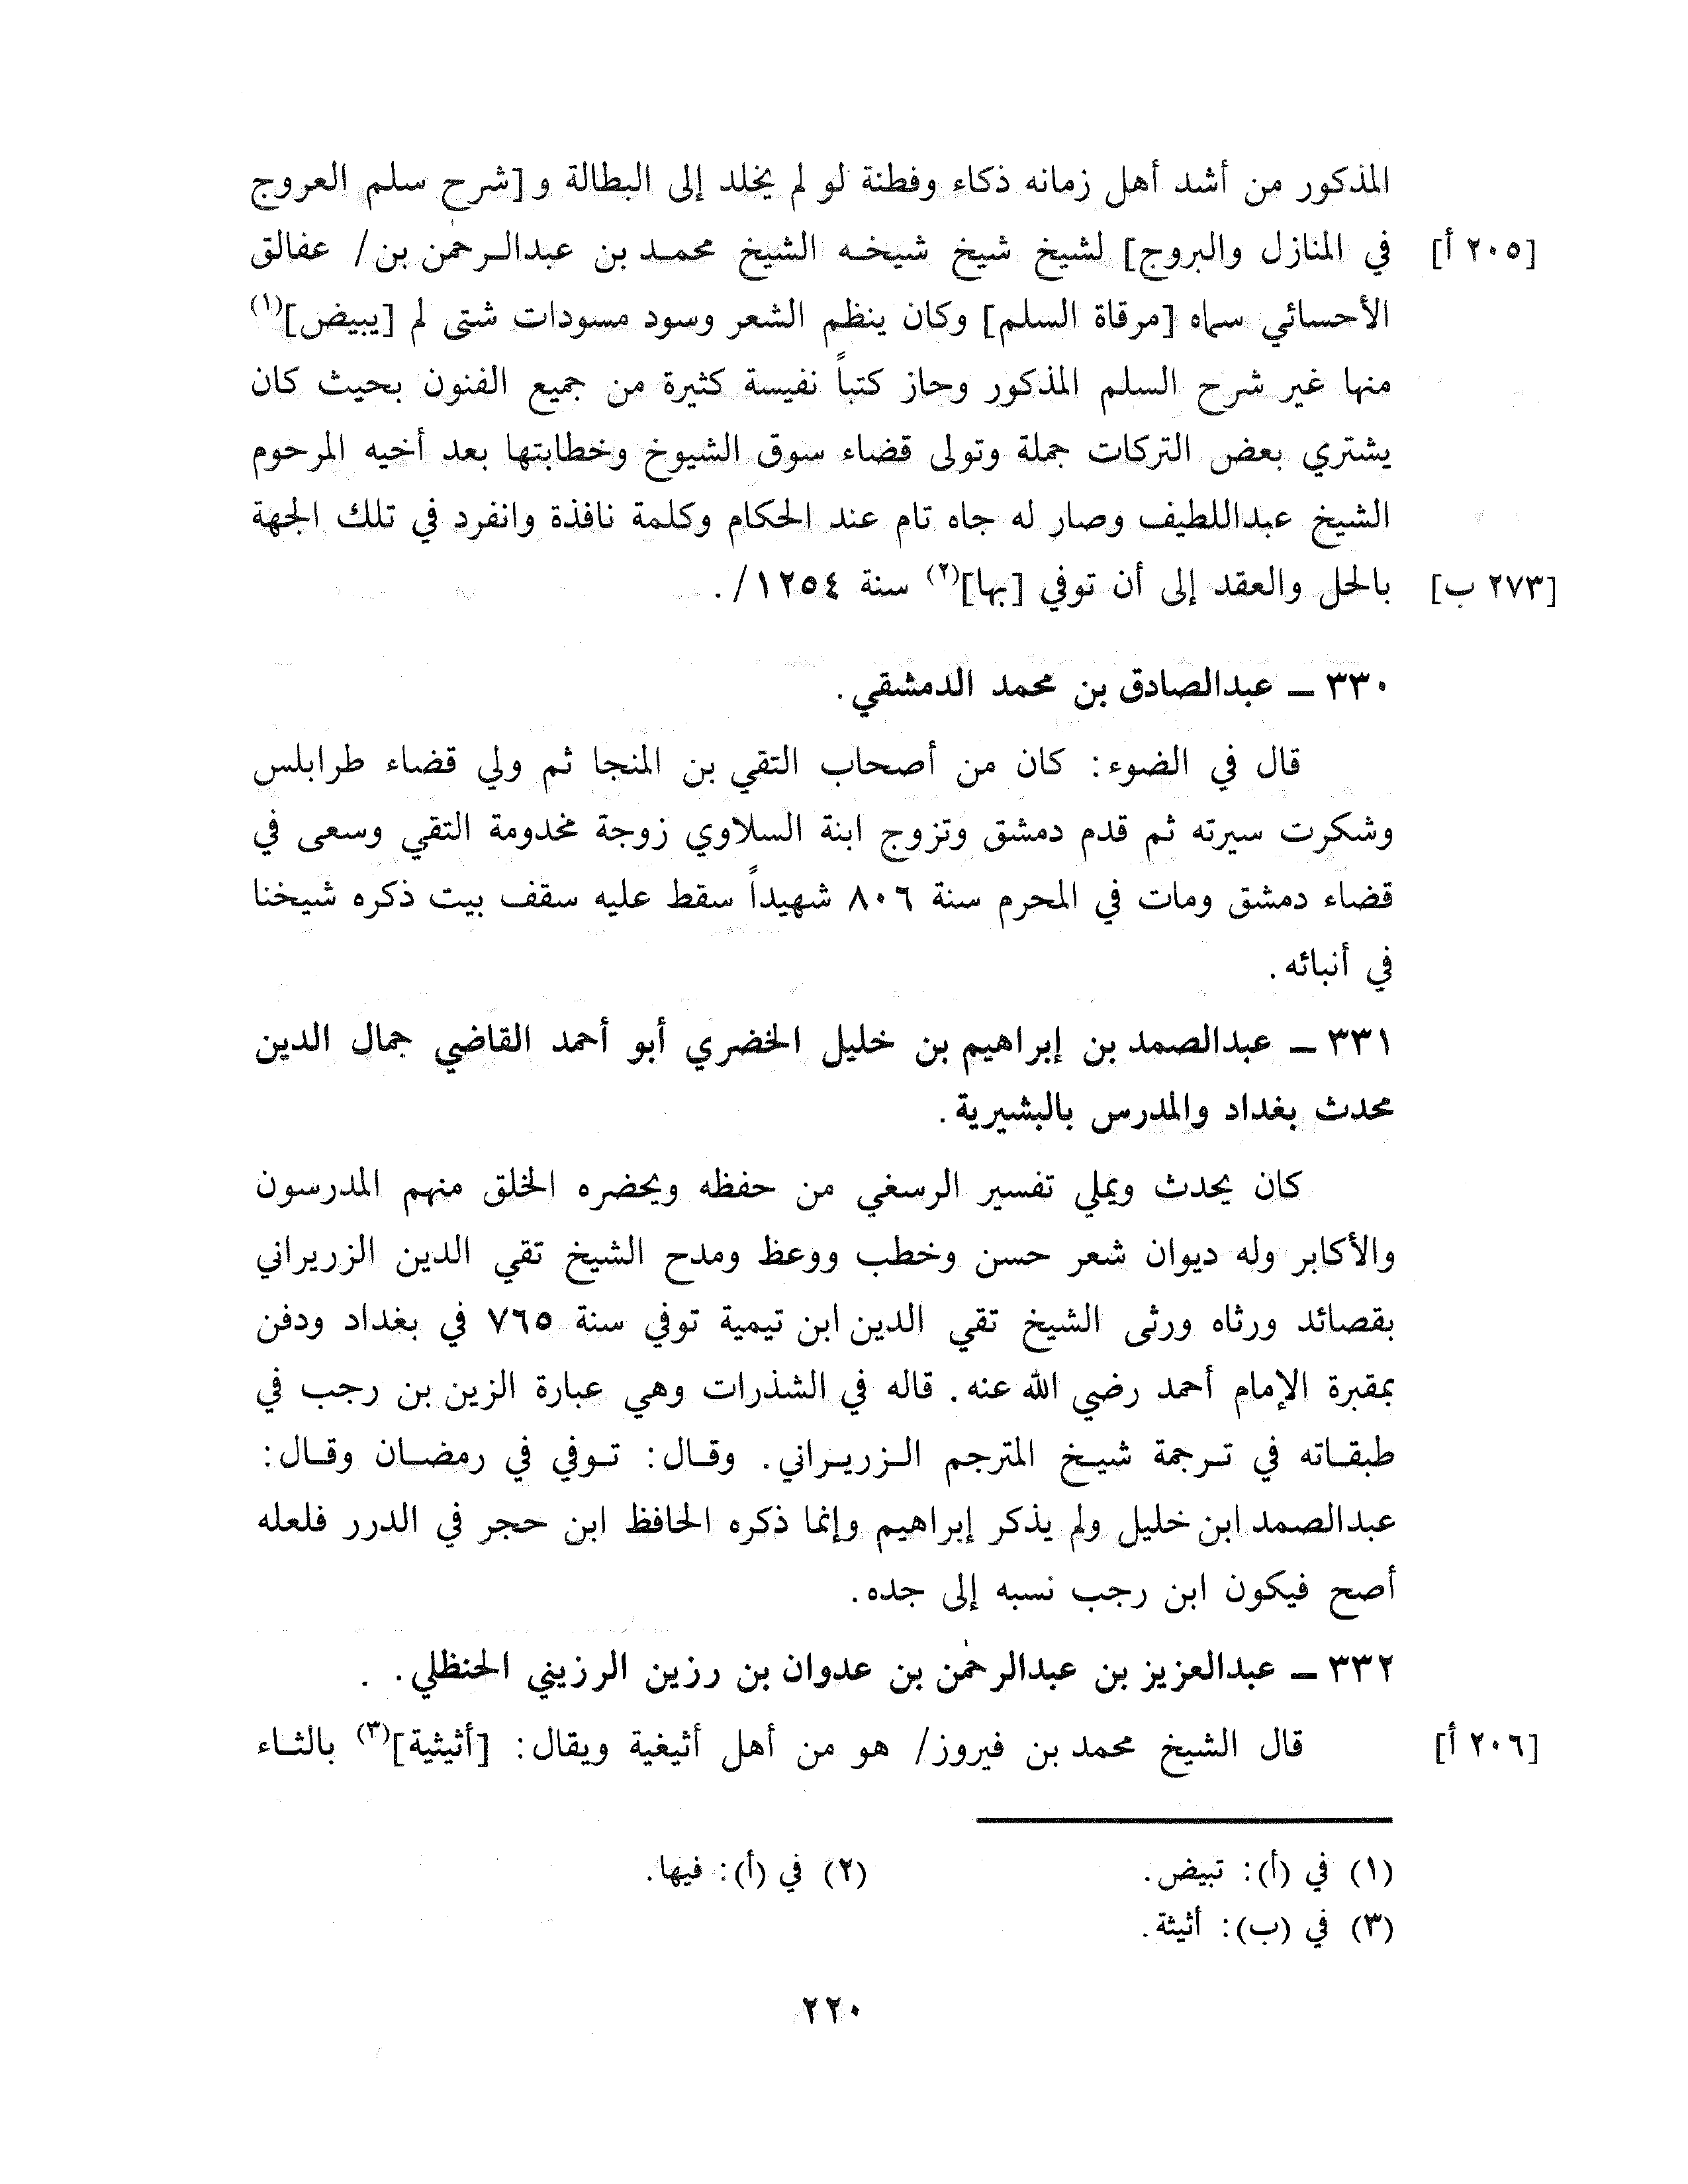 المذكور من أشد أهل زمانه ذكاء وفطنة لو لم يخلد إلى البطالة و [شرح سلم العروج
[٢٠٥ أ] في المنازل والبروج] لشيخ شيخ شيخه الشيخ محمد بن عبدالرحمٰن بن/ عفالق
الأحسائي سماه [مرقاة السلم] وكان ينظم الشعر وسود مسودات شتى لم [يبيض](١)
منها غير شرح السلم المذكور وحاز كتباً نفيسة كثيرة من جميع الفنون بحيث كان
يشتري بعض التركات جملة وتولى قضاء سوق الشيوخ وخطابتها بعد أخيه المرحوم
الشيخ عبداللطيف وصار له جاه تام عند الحكام وكلمة نافذة وانفرد في تلك الجهة
[٢٧٣ ب] بالحل والعقد إلى أن توفي [بها](٢) سنة ١٢٥٤/.
٣٣٠ ــ عبدالصادق بن محمد الدمشقي.
قال في الضوء: كان من أصحاب التقي بن المنجا ثم ولي قضاء طرابلس
وشكرت سيرته ثم قدم دمشق وتزوج ابنة السلاوي زوجة مخدومة التقي وسعى في
قضاء دمشق ومات في المحرم سنة ٨٠٦ شهيداً سقط عليه سقف بيت ذكره شيخنا
في أنبائه.
٣٣١ ــ عبدالصمد بن إبراهيم بن خليل الخضري أبو أحمد القاضي جمال الدين
محدث بغداد والمدرس بالبشيرية.
كان يحدث ويملي تفسير الرسغي من حفظه ويحضره الخلق منهم المدرسون
والأكابر وله ديوان شعر حسن وخطب ووعظ ومدح الشيخ تقي الدين الزريراني
بقصائد ورثاه ورثى الشيخ تقي الدين ابن تيمية توفي سنة ٧٦٥ في بغداد ودفن
بمقبرة الإمام أحمد رضي الله عنه. قاله في الشذرات وهي عبارة الزين بن رجب في
طبقاته في ترجمة شيخ المترجم الزريراني. وقال: توفي في رمضان وقال:
عبدالصمد ابن خليل ولم يذكر إبراهيم وإنما ذكره الحافظ ابن حجر في الدرر فلعله
أصح فيكون ابن رجب نسبه إلى جده.
٣٣٢ ــ عبدالعزيز بن عبدالرحمٰن بن عدوان بن رزين الرزيني الحنظلي.
[٢٠٦ أ] قال الشيخ محمد بن فيروز/ هو من أهل أثيغية ويقال: [أثيثية](٣) بالثاء
(١) في (أ): تبيض.
(٢) في (أ): فيها.
(٣) في (ب): أثيثة.
٢٢٠